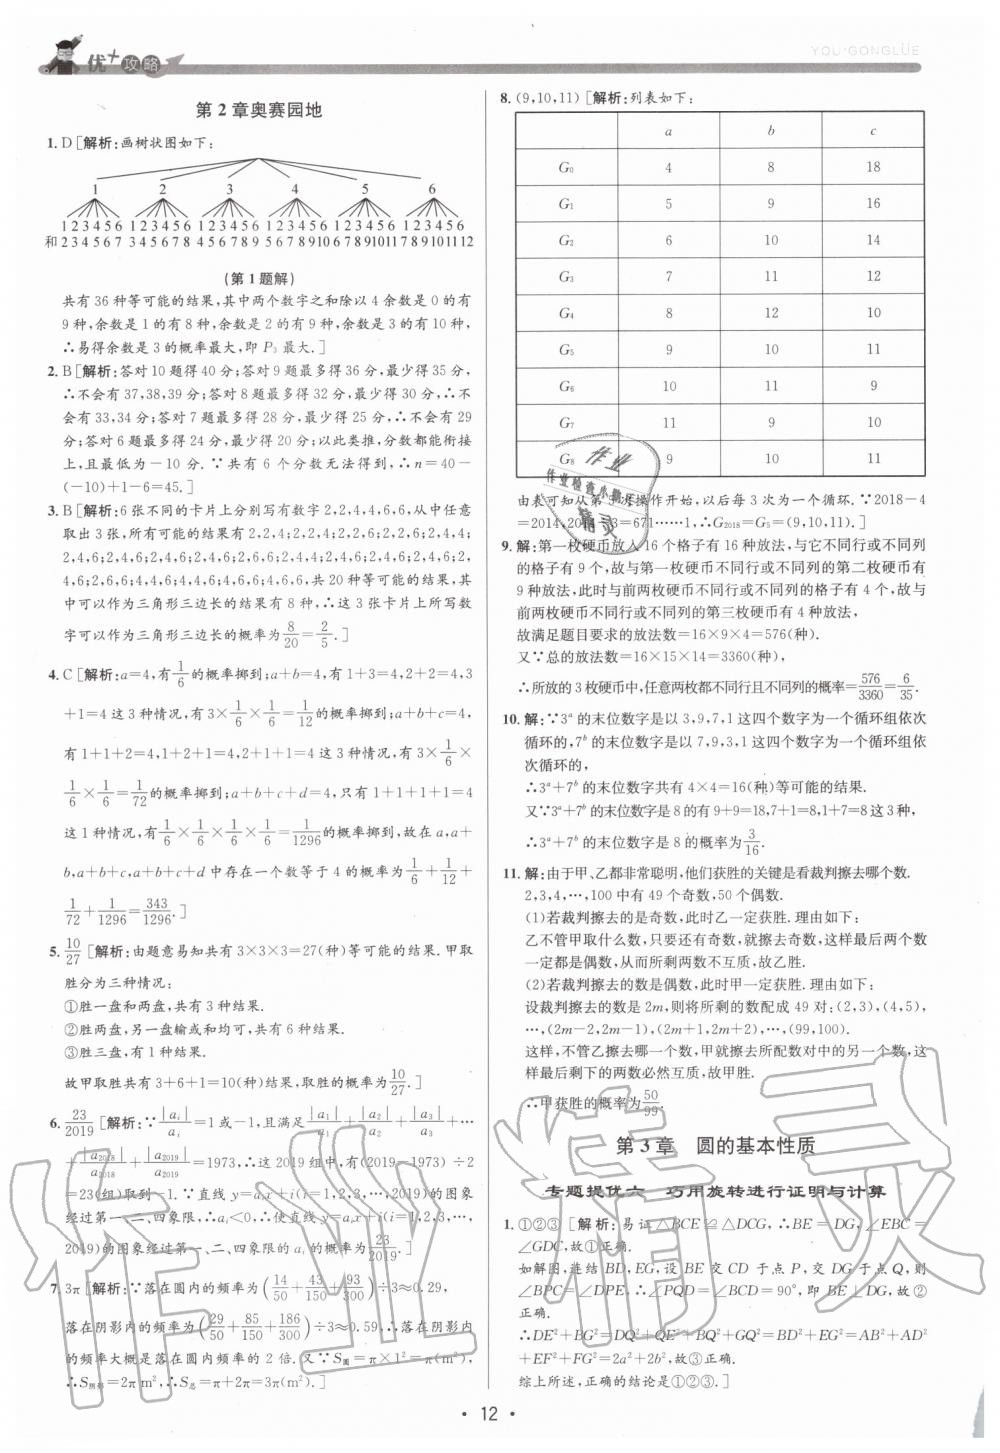 优+攻略
YOU·GONGLÜE
第2章奥赛园地
1. D [解析:画树状图如下:
1 2 3 4 5 6
123456 123456 123456 123456 123456 123456
和234567 345678 456789 5678910 67891011 789101112
(第1题解)
共有36种等可能的结果,其中两个数字之和除以4余数是0的有
9种,余数是1的有8种,余数是2的有9种,余数是3的有10种,
∴易得余数是3的概率最大,即P₃最大.]
2. B [解析:答对10题得40分;答对9题最多得36分,最少得35分,
∴不会有37,38,39分;答对8题最多得32分,最少得30分,∴不会
有33,34分;答对7题最多得28分,最少得25分,∴不会有29
分;答对6题最多得24分,最少得20分;以此类推,分数都能衔接
上,且最低为-10分.∵共有6个分数无法得到,∴n=40-
(-10)+1-6=45.]
3. B [解析:6张不同的卡片上分别写有数字2,2,4,4,6,6,从中任意
取出3张,所有可能的结果有2,2,4;2,2,4;2,2,6;2,2,6;2,4,4;
2,4,6;2,4,6;2,4,6;2,4,6;2,6,6;2,4,4;2,4,6;2,4,6;2,4,6;
2,4,6;2,6,6;4,4,6;4,4,6;4,6,6;4,6,6,共20种等可能的结果,其
中可以作为三角形三边长的结果有8种,∴这3张卡片上所写数
字可以作为三角形三边长的概率为8/20=2/5.]
4. C [解析:a=4,有1/6的概率掷到;a+b=4,有1+3=4,2+2=4,3
+1=4这3种情况,有3×1/6×1/6=1/12的概率掷到;a+b+c=4,
有1+1+2=4,1+2+1=4,2+1+1=4这3种情况,有3×1/6×
1/6×1/6=1/72的概率掷到;a+b+c+d=4,只有1+1+1+1=4
这1种情况,有1/6×1/6×1/6×1/6=1/1296的概率掷到,故在a,a+
b,a+b+c,a+b+c+d中存在一个数等于4的概率为1/6+1/12+
1/72+1/1296=343/1296.]
5. 10/27 [解析:由题意易知共有3×3×3=27(种)等可能的结果.甲取
胜分为三种情况:
①胜一盘和两盘,共有3种结果.
②胜两盘,另一盘输或和均可,共有6种结果.
③胜三盘,有1种结果.
故甲取胜共有3+6+1=10(种)结果,取胜的概率为10/27.]
6. 23/2019 [解析:∵|aᵢ|/aᵢ=1或-1,且满足|a₁|/a₁+|a₂|/a₂+|a₃|/a₃+…
+|a₂₀₁₈|/a₂₀₁₈+|a₂₀₁₉|/a₂₀₁₉=1973,∴这2019组中,有(2019-1973)÷2
=23(组)取到-1.∵直线y=aᵢx+i(i=1,2,3,…,2019)的图象
经过第一、二、四象限,∴aᵢ<0,∴使直线y=aᵢx+i(i=1,2,3,…,
2019)的图象经过第一、二、四象限的aᵢ的概率为23/2019.]
7. 3π [解析:∵落在圆内的频率为(14/50+43/150+93/300)÷3≈0.29,
落在阴影内的频率为(29/50+85/150+186/300)÷3≈0.59,∴落在阴影内
的频率大概是落在圆内频率的2倍.又∵S圆=π×1²=π(m²),
∴S阴影=2π m²,∴S总=π+2π=3π(m²).]
8. (9,10,11) [解析:列表如下:
a b c
G₀ 4 8 18
G₁ 5 9 16
G₂ 6 10 14
G₃ 7 11 12
G₄ 8 12 10
G₅ 9 10 11
G₆ 10 11 9
G₇ 11 9 10
G₈ 9 10 11
由表可知从第5次操作开始,以后每3次为一个循环.∵2018-4
=2014,2014÷3=671……1,∴G₂₀₁₈=G₅=(9,10,11).]
9. 解:第一枚硬币放入16个格子有16种放法,与它不同行或不同列
的格子有9个,故与第一枚硬币不同行或不同列的第二枚硬币有
9种放法,此时与前两枚硬币不同行或不同列的格子有4个,故与
前两枚硬币不同行或不同列的第三枚硬币有4种放法,
故满足题目要求的放法数=16×9×4=576(种).
又∵总的放法数=16×15×14=3360(种),
∴所放的3枚硬币中,任意两枚都不同行且不同列的概率=576/3360=6/35.
10. 解:∵3ᵃ的末位数字是以3,9,7,1这四个数字为一个循环组依次
循环的,7ᵇ的末位数字是以7,9,3,1这四个数字为一个循环组依
次循环的,
∴3ᵃ+7ᵇ的末位数字共有4×4=16(种)等可能的结果.
又∵3ᵃ+7ᵇ的末位数字是8的有9+9=18,7+1=8,1+7=8这3种,
∴3ᵃ+7ᵇ的末位数字是8的概率为3/16.
11. 解:由于甲、乙都非常聪明,他们获胜的关键是看裁判擦去哪个数.
2,3,4,…,100中有49个奇数,50个偶数.
(1)若裁判擦去的是奇数,此时乙一定获胜.理由如下:
乙不管甲取什么数,只要还有奇数,就擦去奇数,这样最后两个数
一定都是偶数,从而所剩两数不互质,故乙胜.
(2)若裁判擦去的是偶数,此时甲一定获胜.理由如下:
设裁判擦去的数是2m,则将所剩的数配成49对:(2,3),(4,5),
…,(2m-2,2m-1),(2m+1,2m+2),…,(99,100).
这样,不管乙擦去哪一个数,甲就擦去所配数对中的另一个数,这
样最后剩下的两数必然互质,故甲胜.
∴甲获胜的概率为50/99.
第3章 圆的基本性质
专题提优六 巧用旋转进行证明与计算
1. ①②③ [解析:易证△BCE≌△DCG,∴BE=DG,∠EBC=
∠GDC,故①正确.
如解图,连结BD,EG,设BE交CD于点P,交DG于点Q,则
∠BPC=∠DPE,∴∠PQD=∠BCD=90°,即BE⊥DG,故②
正确.
∴DE²+BG²=DQ²+QE²+BQ²+GQ²=BD²+EG²=AB²+AD²
+EF²+FG²=2a²+2b²,故③正确.
综上所述,正确的结论是①②③.]
·12·
作业
作业检查小助
精灵
作业精灵